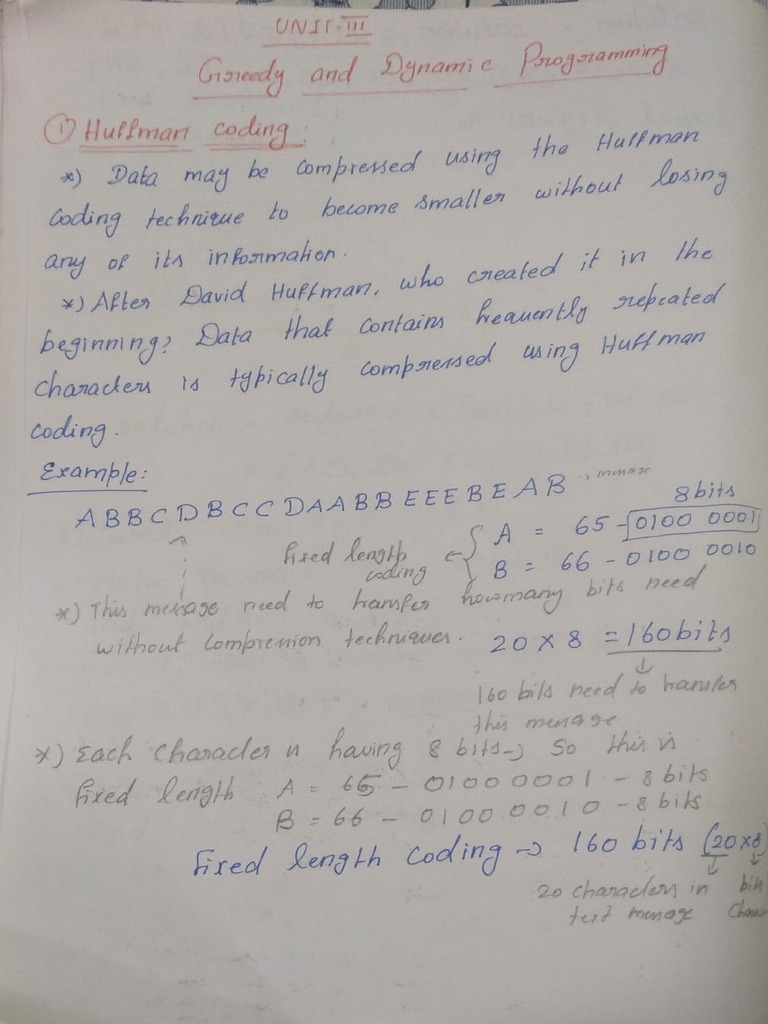 UNIT-III
Greedy and Dynamic Programming
① Huffman coding:
*) Data may be compressed using the Huffman
coding technique to become smaller without losing
any of its information.
*) After David Huffman, who created it in the
beginning; Data that contains frequently repeated
characters is typically compressed using Huffman
coding.
Example:
A B B C D B C C D A A B B E E E B E A B → message
8 bits
A = 65 - 0100 0001
fixed length coding ← { B = 66 - 0100 0010
*) This message need to transfer howmany bits need
without compression techniques. 20 × 8 = 160 bits
↓
160 bits need to transfer
this message
*) Each character is having 8 bits → So this is
fixed length A = 65 - 0100 0001 - 8 bits
B = 66 - 0100 0010 - 8 bits
Fixed length coding → 160 bits (20×8
20 characters in
text message